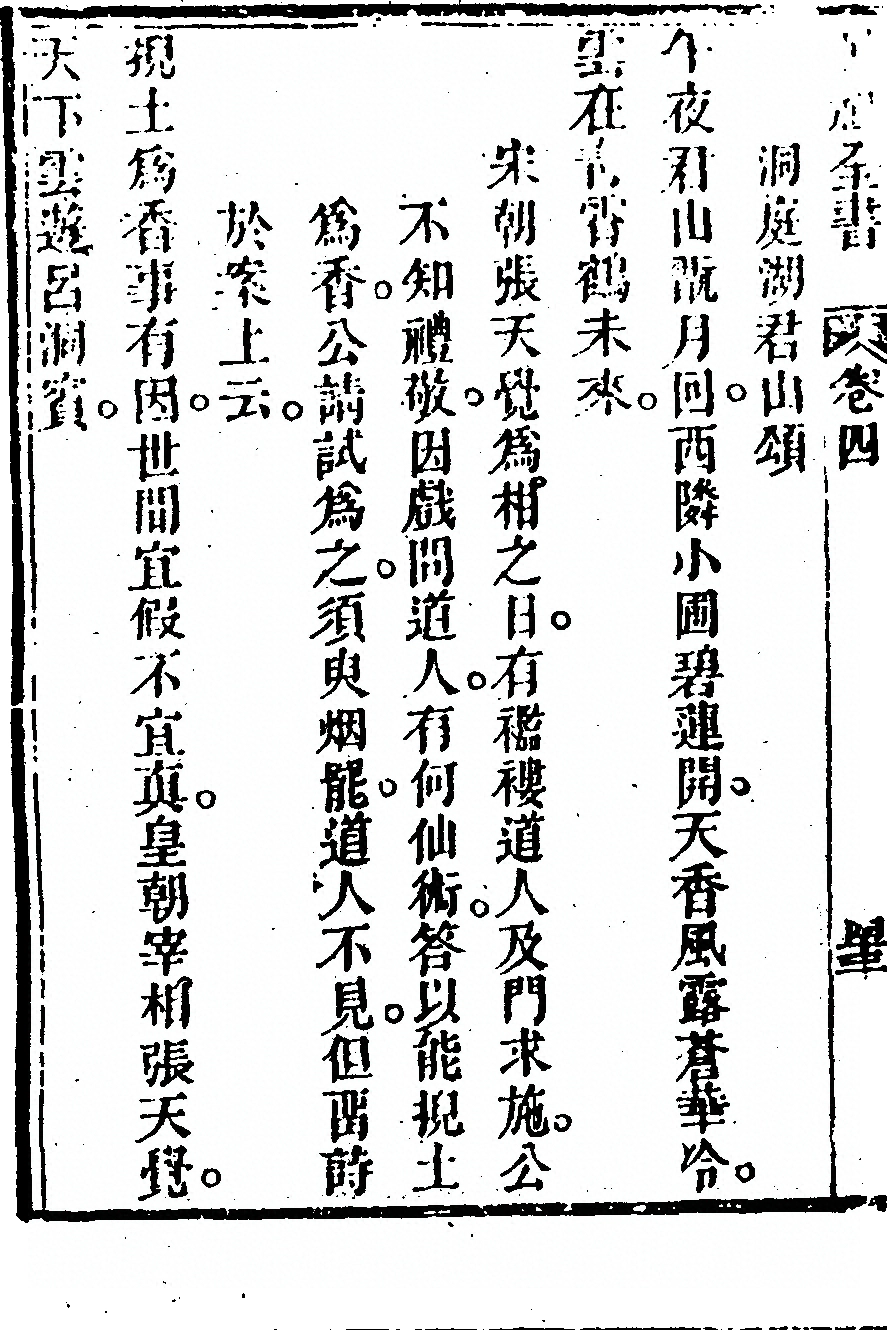 全書 卷四
洞庭湖君山頌
午夜君山翫月回。西隣小圃碧蓮開。天香風露蒼華冷。
雲在青霄鶴未來。
宋朝張天覺爲相之日。有襤褸道人及門求施。公
不知禮敬。因戲問道人。有何仙術。答以能揑土
爲香。公請試爲之。須臾烟罷。道人不見。但畱詩
於案上云。
揑土爲香事有因。世間宜假不宜真。皇朝宰相張天覺。
天下雲遊呂洞賓。